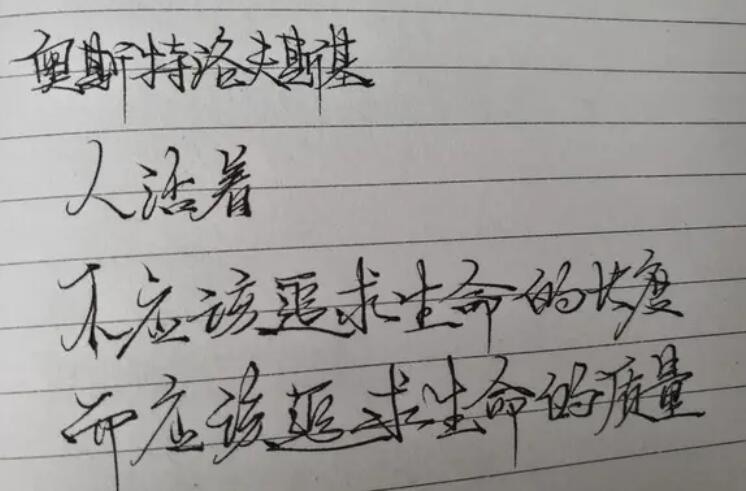 奥斯特洛夫斯基
人活着
不应该追求生命的长度
而应该追求生命的质量